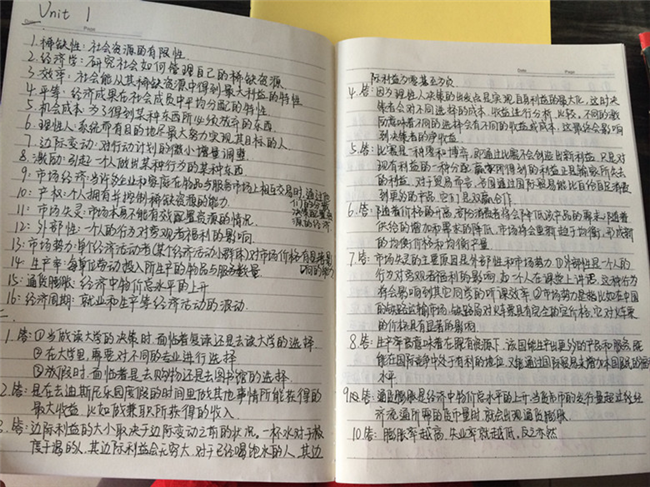 Unit 1
1. 稀缺性：社会资源的有限性.
2. 经济学：研究社会如何管理自己的稀缺资源
3. 效率：社会能从其稀缺资源中得到最大利益的特性
4. 平等：经济成果在社会成员中平均分配的特性
5. 机会成本：为了得到某种东西所必须放弃的东西
6. 理性人：系统而有目的地尽最大努力实现其目标的人
7. 边际变动：对行动计划的微小增量调整
8. 激励：引起一个人做出某种行为的某种东西
9. 市场经济：当许多企业和家庭在物品与服务市场上相互交易时，通过他
们的分散
决策配置资
源的经济
10. 产权：个人拥有并控制稀缺资源的能力
11. 市场失灵：市场本身不能有效配置资源的情况.
12. 外部性：一个人的行为对旁观者福利的影响
13. 市场势力：单个经济活动者(某个经济活动小群体)对市场价格有显著影
响的
14. 生产率：每单位劳动投入所生产的物品与服务数量
15. 通货膨胀：经济中物价总水平的上升
16. 经济周期：就业和生产等经济活动的波动.
二.
1. 答：①当做读大学的决策时，面临着复读还是去读大学的选择
②在大学里，需要对不同的专业进行选择
③放假时，面临着是去购物还是去图书馆的选择.
2. 答：是在去迪斯尼乐园度假的时间里做其他事情所能获得的
最大收益，比如做兼职所获得的收入.
3. 答：边际利益的大小取决于边际变动之前的状况。一杯水对于极
度干渴的人，其边际利益会无穷大，对于已经喝饱水的人，其边
际利益为零甚至为负
4. 答：因为理性人决策的出发点是实现自身利益的最大化，这时决
策者会对不同选择的成本、收益进行分析、比较，不同的激
励意味着不同的选择会有不同的收益或成本，这最终会影响
到决策者的净收益
5. 答：比赛是一种零和博弈，即通过比赛不会创造出新利益，只是对
现有利益的一种分配，赢家所得到的利益正是输家所失去
的利益，对于贸易而言，各国通过国际贸易能比自给自足消费
到更多的产品，它们是双赢合作
6. 答：随着价格的升高，部分消费者将会降低该产品的需求，随着
供给的增加和需求的降低，市场将会重新趋于均衡，形成新
的均衡价格和均衡产量
7. 答：市场失灵的主要原因是外部性和市场势力，①外部性是一个人的
行为对旁观者福利的影响，如一个人在课堂上讲话，这种行为
将会影响到其它同学的听课效率 ②市场势力是指比如在中国
的铁路运输市场，铁路局对火车票具有完全的定价权，它对火车票
的价格具有显著的影响
8. 答：生产率高意味着在既有资源下，该国能生产出更多的产品和服务，既
能在国际竞争中处于有利的地位，又能通过国际贸易来增加本国居民的
水平
9. 答：通货膨胀是经济中物价总水平的上升，当货币的发行量超过经
济流通所需的货币量时，就会出现通货膨胀
10. 答：膨胀率越高，失业率就越低，反之亦然